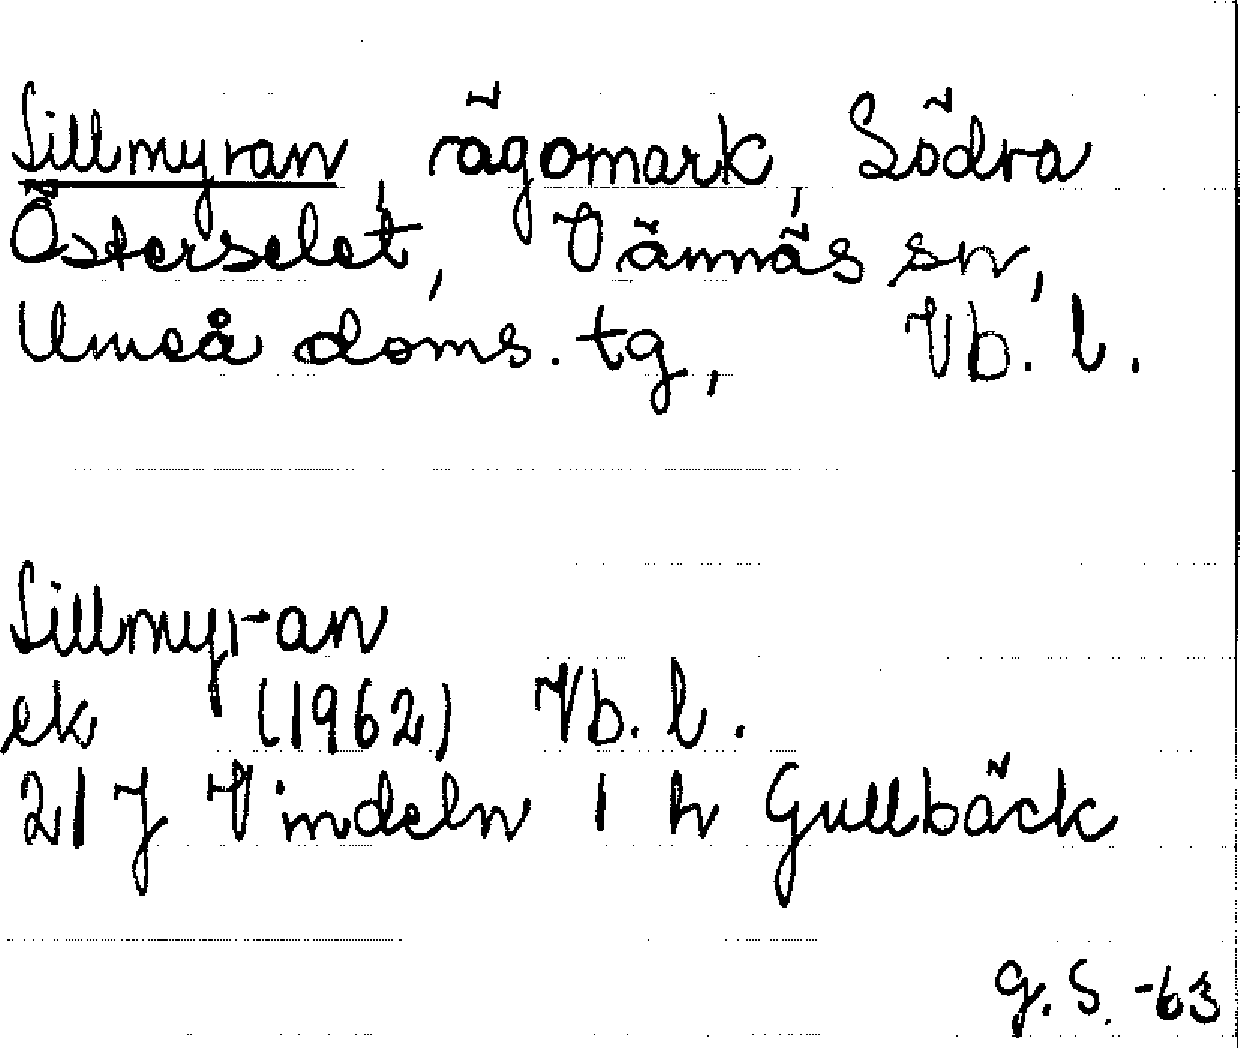 Sillmyran, rågomark, Södra
Österselet, Vännäs sn,
Umeå doms. tg, Vb. l.
Sillmyran
ek (1962) Vb. l.
21 J Vindeln 1 h Gullbäck
G. S. -63